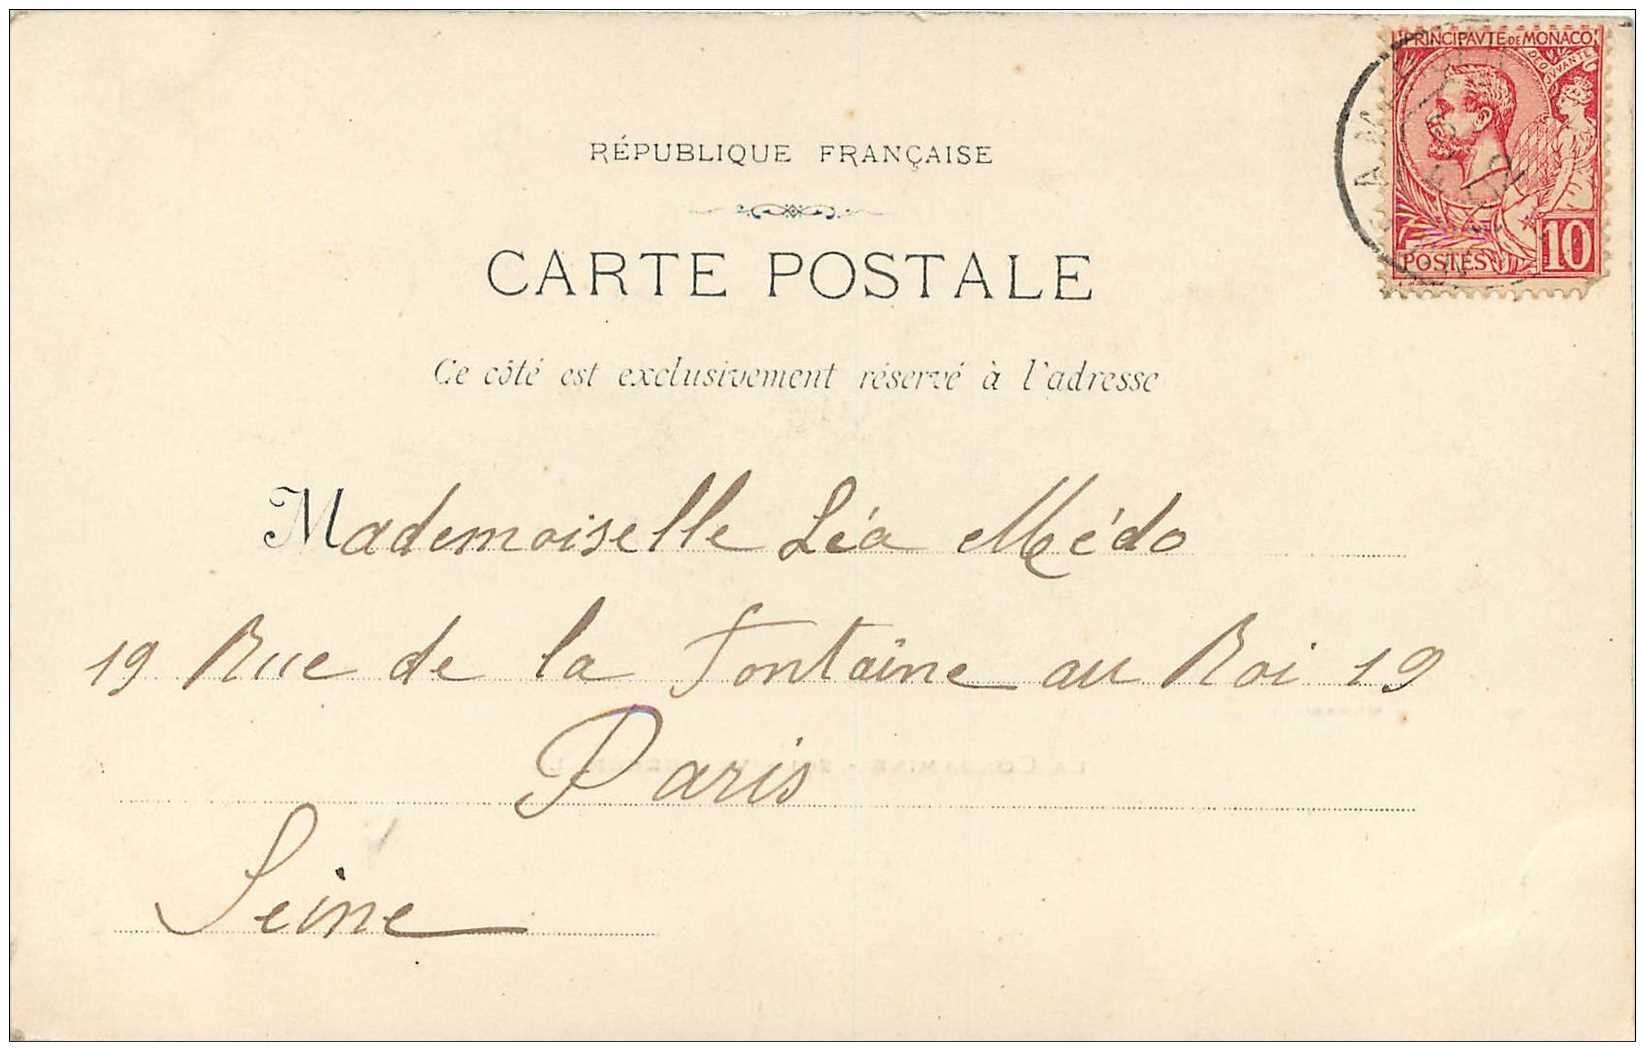 PRINCIPAVTÉ DE MONACO
DEO JVVANTE
POSTES 10
RÉPUBLIQUE FRANÇAISE
CARTE POSTALE
Ce côté est exclusivement réservé à l'adresse
Mademoiselle Léa Médo
19 Rue de la Fontaine au Roi 19
Paris
Seine